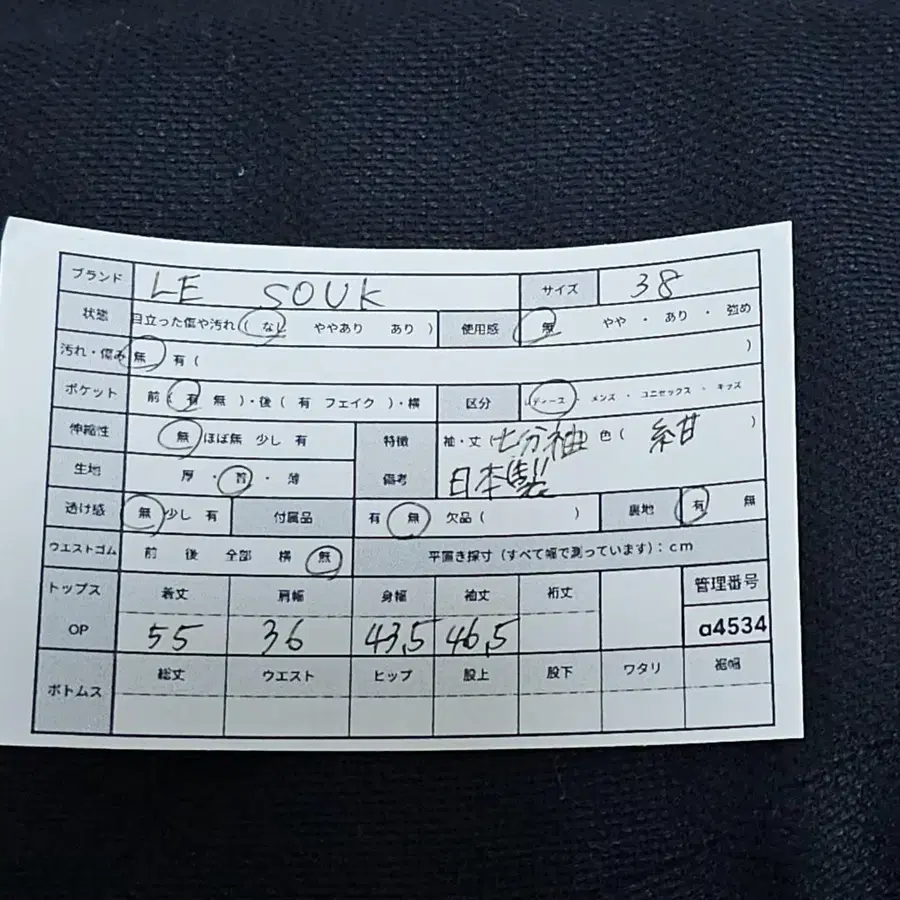 ブランド LE SOUK サイズ 38
状態 目立った傷や汚れ ( なし ややあり あり ) 使用感 無 やや ・ あり ・ 強め
汚れ・傷み 無 有 ( )
ポケット 前 ( 有 無 )・後 ( 有 フェイク )・横 区分 レディース ・ メンズ ・ ユニセックス ・ キッズ
伸縮性 無 ほぼ無 少し 有 特徴 袖・丈 ( 七分袖 色 ( 紺 )
生地 厚 ・ 普 ・ 薄 備考 日本製
透け感 無 少し 有 付属品 有 無 欠品 ( ) 裏地 有 無
ウエストゴム 前 後 全部 横 無 平置き採寸 (すべて幅で測っています) : cm
トップス 着丈 肩幅 身幅 袖丈 裄丈 管理番号
OP 55 36 43.5 46.5 a4534
ボトムス 総丈 ウエスト ヒップ 股上 股下 ワタリ 裾幅